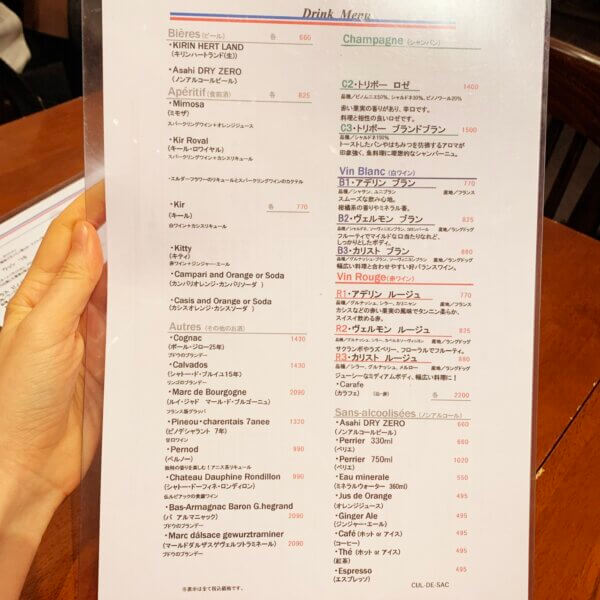 Drink Menu
Bières(ビール) 各 660
・KIRIN HERT LAND
(キリンハートランド(生))
・Asahi DRY ZERO
(ノンアルコールビール)
Apéritif(食前酒) 各 825
・Mimosa
(ミモザ)
スパークリングワイン+オレンジジュース
・Kir Royal
(キール・ロワイヤル)
スパークリングワイン+カシスリキュール
・エルダーフラワーのリキュールとスパークリングワインのカクテル
・Kir 各 770
(キール)
白ワイン+カシスリキュール
・Kitty
(キティ)
赤ワイン+ジンジャー・エール
・Campari and Orange or Soda
(カンパリオレンジ・カンパリソーダ )
・Casis and Orange or Soda
(カシスオレンジ・カシスソーダ)
Autres (その他のお酒)
・Cognac 1430
(ポール・ジロー25年)
ブドウのブランデー
・Calvados 1430
(シャトー・ド・ブルイユ15年)
リンゴのブランデー
・Marc de Bourgogne 2090
(ルイ・ジャド マール・ド・ブルゴーニュ)
フランス版グラッパ
・Pineou・charentais 7anee 1320
(ピノデシャラント 7年)
甘口ワイン
・Pernod 990
(ペルノー)
独特の香りを楽しむ!アニス系リキュール
・Chateau Dauphine Rondillon 990
(シャトー・ドーフィネ・ロンディロン)
仏ルピアックの貴腐ワイン
・Bas-Armagnac Baron G.hegrand
(バ アルマニャック) 2090
ブドウのブランデー
・Marc dálsace gewurztraminer
(マールドダルザスゲヴェルツトラミネール) 2090
ブドウのブランデー
※表示は全て税込価格です。
Champagne (シャンパン)
C2・トリボー ロゼ 1400
品種/ピノムニエ50%、シャルドネ30%、ピノノワール20%
赤い果実の香りがあり、辛口です。
料理と相性の良いロゼです。
C3・トリボー ブランドブラン 1500
品種/シャルドネ100%
トーストしたパンやはちみつを彷彿するアロマが
印象強く、魚料理に理想的なシャンパーニュ。
Vin Blanc (白ワイン)
B1・アデリン ブラン 770
品種/シャサン、ユニブラン 産地/フランス
スムーズな飲み心地。
柑橘系の香りやミネラル香。
B2・ヴェルモン ブラン 825
産地/ラングドッグ
フルーティでマイルドな口当たりなれど、
しっかりとしたボディ。
B3・カリスト ブラン 880
産地/ラングドッグ
幅広い料理と合わせやすい好バランスワイン。
Vin Rouge(赤ワイン)
R1・アデリン ルージュ 770
品種/グルナッシュ、シラー、カリニャン 産地/フランス
カシスなどの赤い果実の風味でタンニン柔らか、
スイスイ飲める赤。
R2・ヴェルモン ルージュ 825
品種/グルナッシュ、シラー、カベルネソーヴィニヨン 産地/ラングドッグ
サクランボやラズベリー、フローラルでフルーティ。
R3・カリスト ルージュ 880
品種/シラー、グルナッシュ、メルロー 産地/ラングドッグ
ジューシーなミディアムボディ、幅広い料理に!
・Carafe
(カラフェ) (白・赤) 各 2200
Sans-alcoolisées (ノンアルコール)
・Asahi DRY ZERO 660
(ノンアルコールビール)
・Perrier 330ml 660
(ペリエ)
・Perrier 750ml 1020
(ペリエ)
・Eau minerale 550
(ミネラルウォーター 360ml)
・Jus de Orange 495
(オレンジジュース)
・Ginger Ale 495
(ジンジャー・エール)
・Café (ホット or アイス) 495
(コーヒー)
・Thé (ホット or アイス) 495
(紅茶)
・Espresso 495
(エスプレッソ)
CUL-DE-SAC